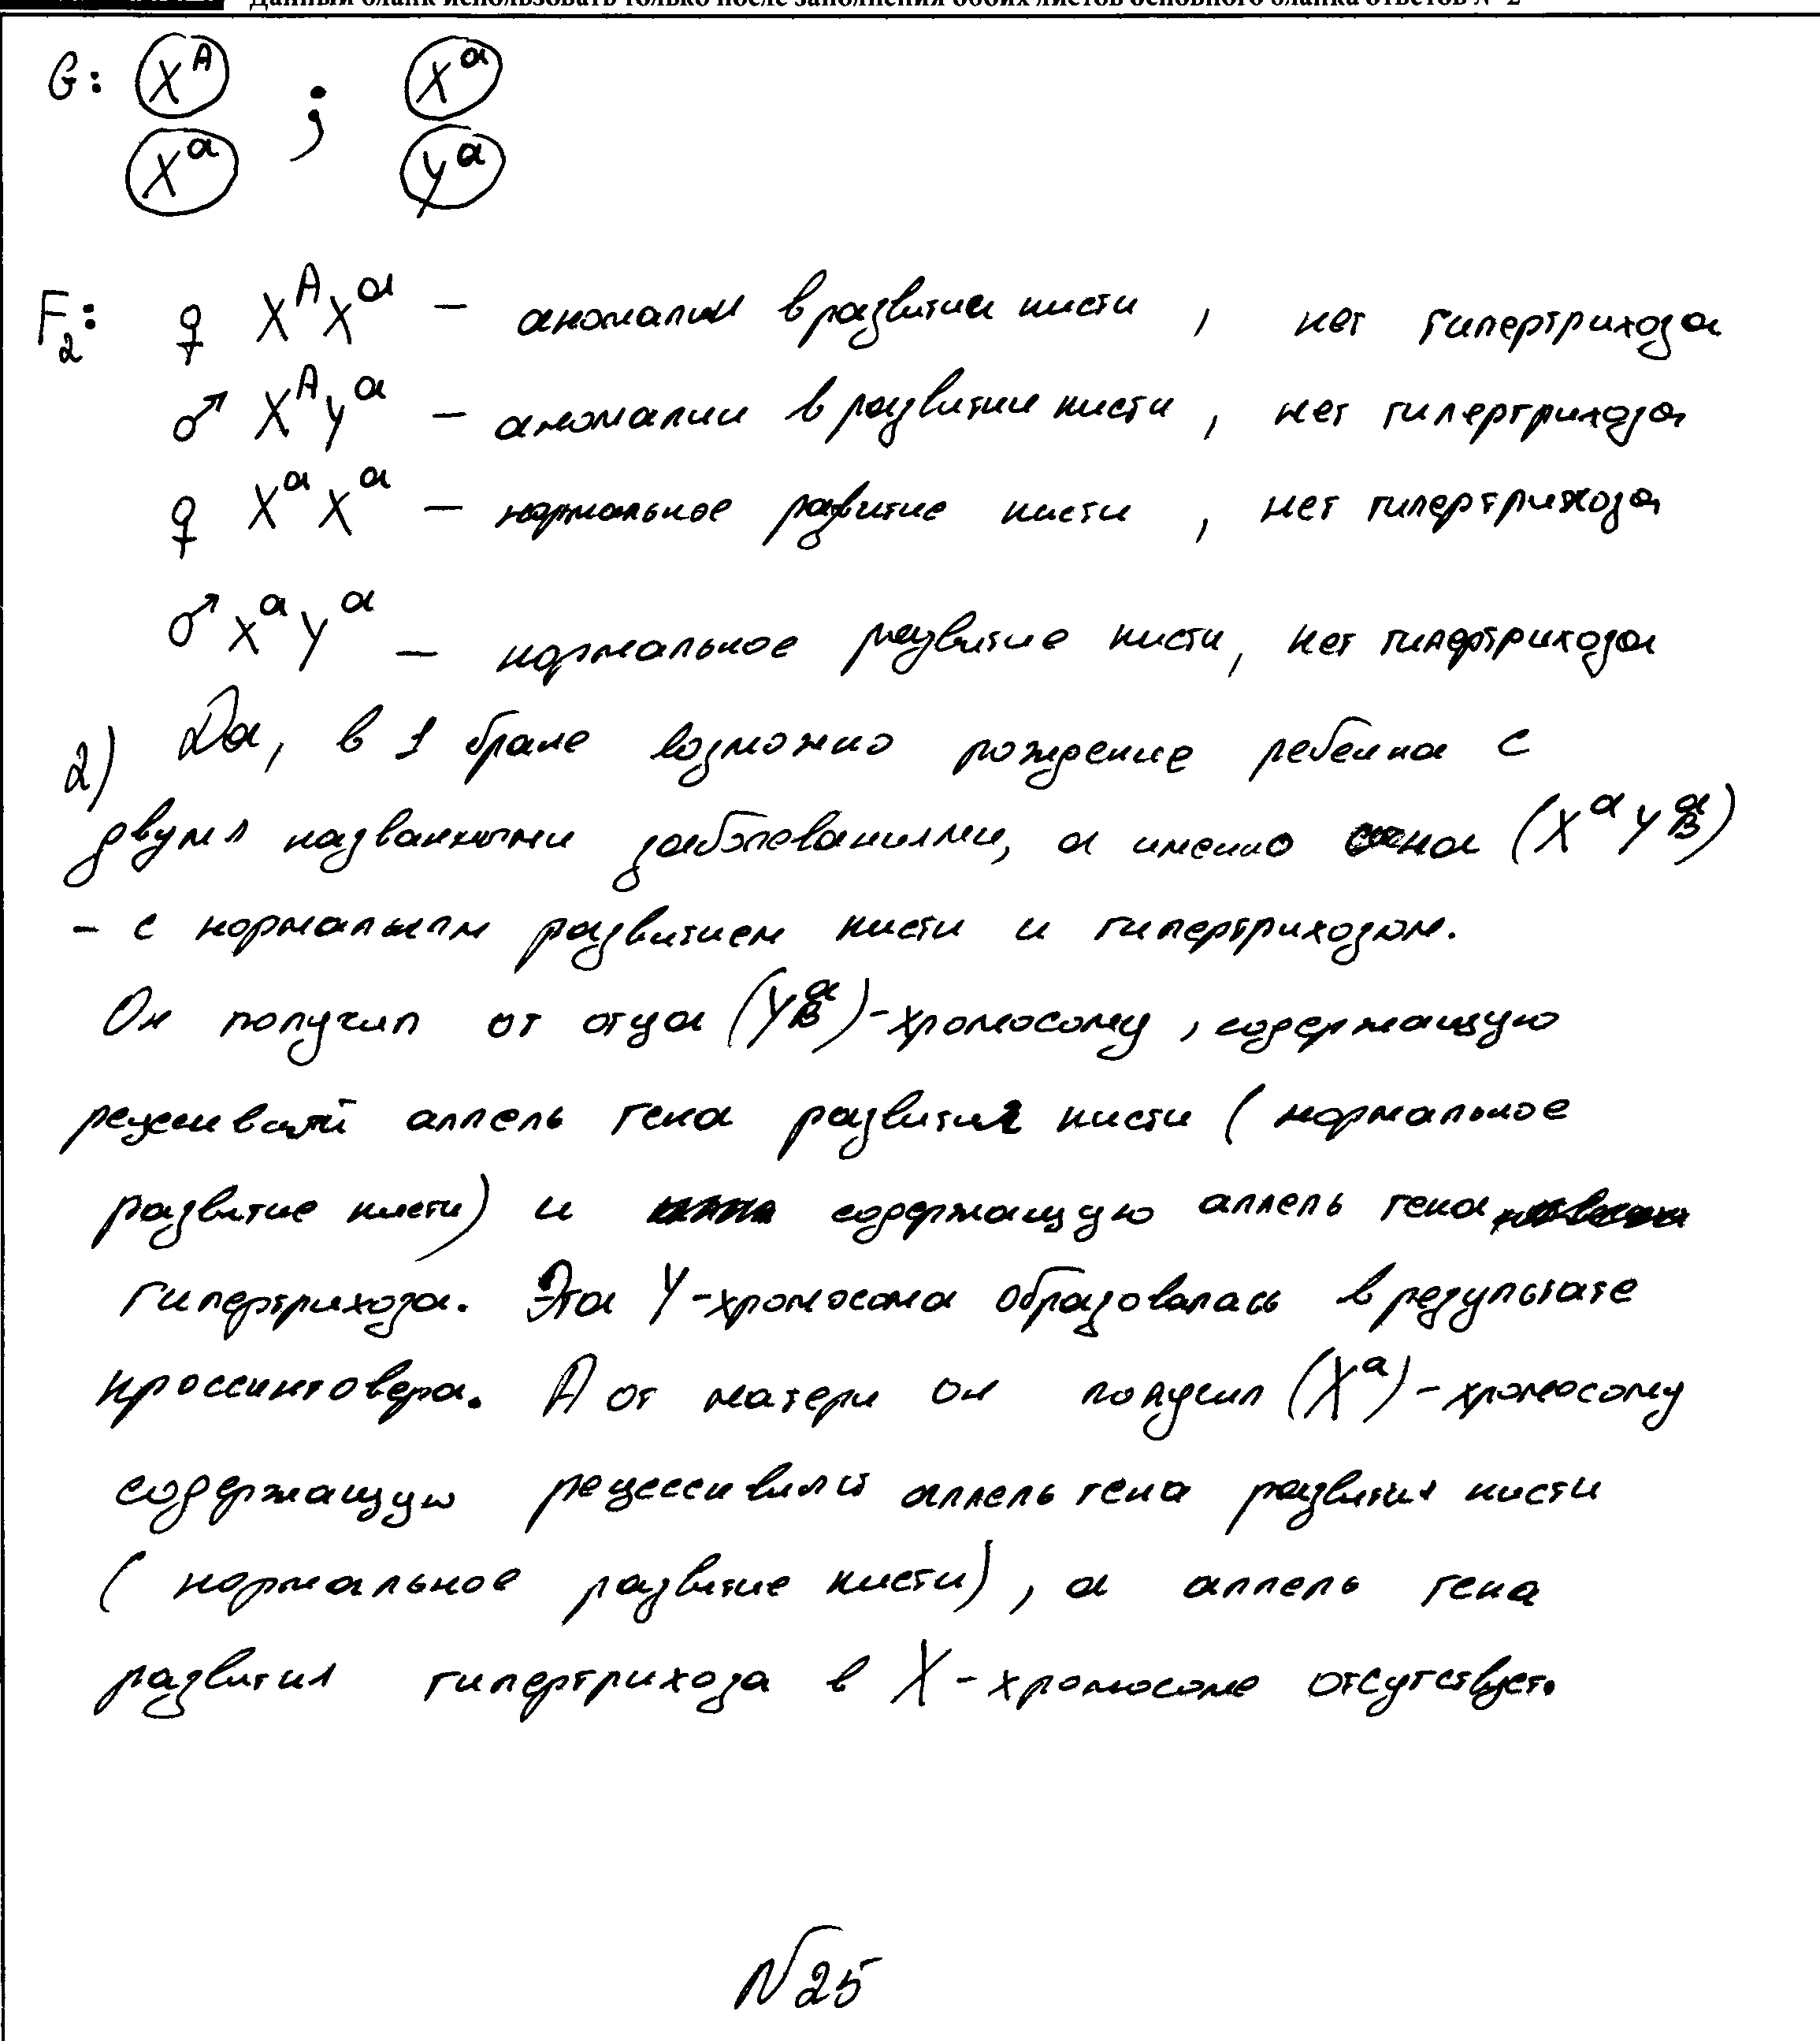 Данный бланк использовать только после заполнения обоих листов основного бланка ответов № 2
G: X^A ; X^a
X^a Y^a
F₂: ♀ X^A X^a – аномалии в развитии кисти, нет гипертрихоза
♂ X^A Y^a – аномалии в развитии кисти, нет гипертрихоза
♀ X^a X^a – нормальное равитие кисти, нет гипертрихоза
♂ X^a Y^a – нормальное развитие кисти, нет гипертрихоза
2) Да, в 1 браке возможно рождение ребенка с
двумя названными заболеваниями, а именно сына (X^a Y^a_B)
– с нормальным развитием кисти и гипертрихозом.
Он получил от отца (Y^a_B)-хромосому, содержащую
рецессивный аллель гена развития кисти (нормальное
развитие кисти) и содержащую аллель гена
гипертрихоза. Эта Y-хромосома образовалась в результате
кроссинговера. А от матери он получил (X^a)-хромосому
содержащую рецессивный аллель гена развития кисти
(нормальное развитие кисти), а аллель гена
развития гипертрихоза в X-хромосоме отсутствует.
№25